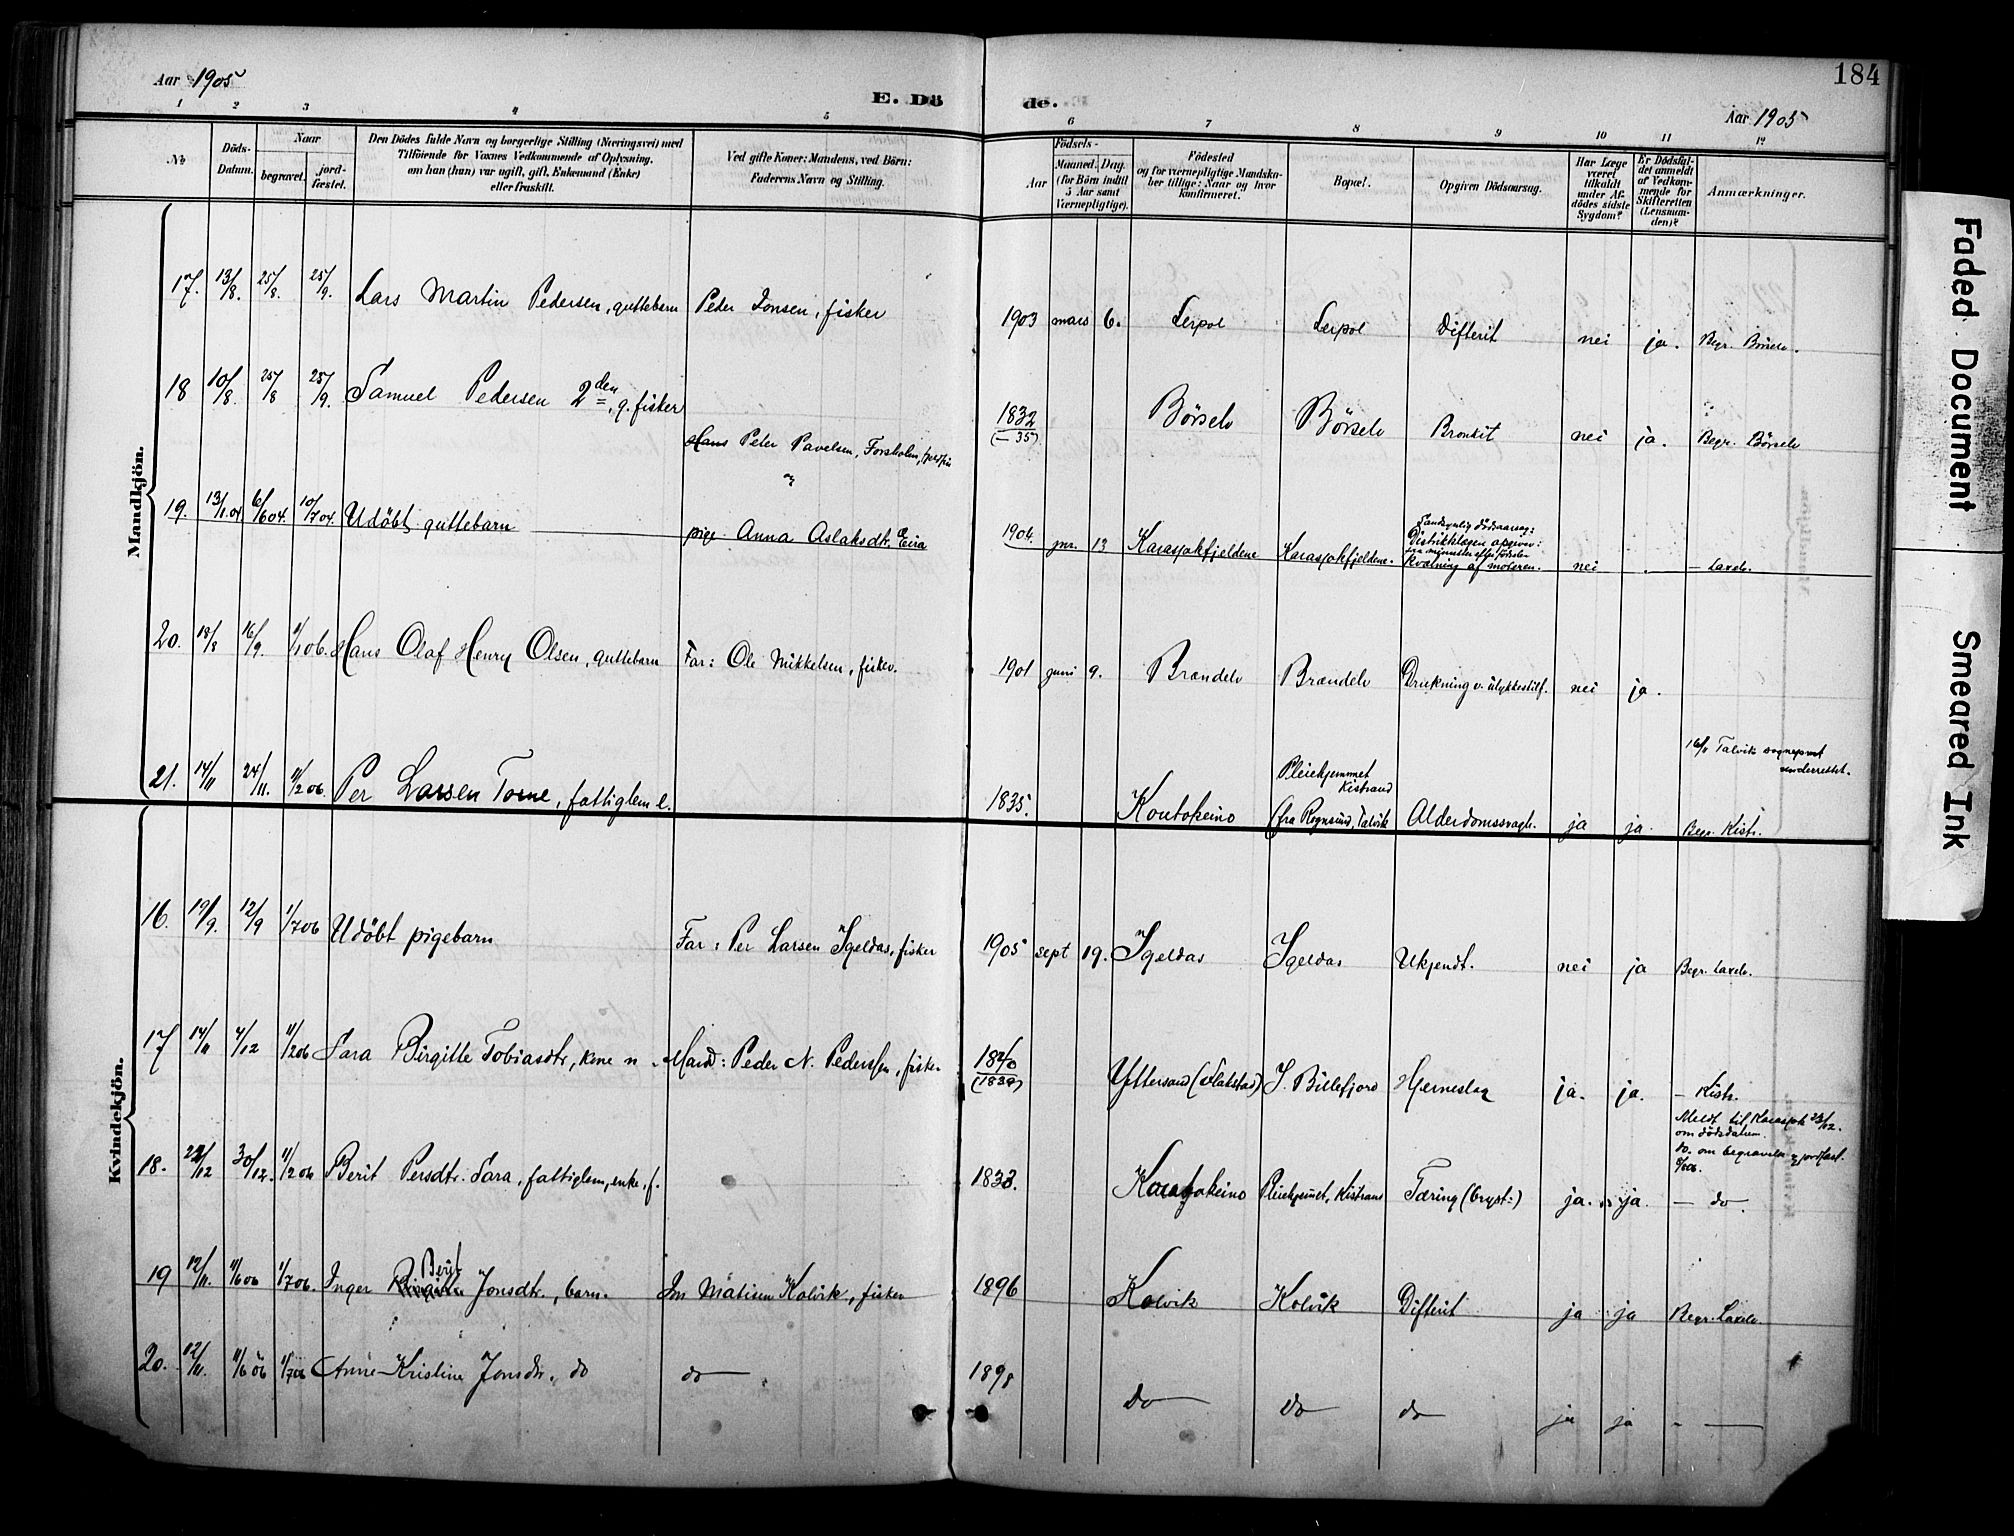 184
Aar 1905
E. Dö de.
Aar 1905
1 2 3 4 5 6 7 8 9 10 11 12
No
Döds-Datum.
Naar
begravet.
jord-fæstet.
Den Dödes fulde Navn og borgerlige Stilling (Næringsvei) med
Tilföiende for Voxnes Vedkommende af Oplysning,
om han (hun) var ugift, gift, Enkemand (Enke)
eller fraskilt.
Ved gifte Koner: Mandens, ved Börn:
Faderens Navn og Stilling.
Födsels-
Aar
Maaned. Dag.
(for Börn indtil
5 Aar samt
Værnepligtige).
Födested
og for værnepligtige Mandska-
ber tillige: Naar og hvor
konfirmeret.
Bopæl.
Opgiven Dödsaarsag.
Har Læge
været
tilkaldt
under Af-
dödes sidste
Sygdom?
Er Dödsfal-
det anmeldt
af Vedkom-
mende for
Skifteretten
(Lensman-
den)?
Anmærkninger.
Mandkjön.
17. 13/8. 25/8. 25/9. Lars Martin Pedersen, guttebarn Peder Jonsen, fisker 1903 mars 6. Lerpol Lerpol Difterit nei ja. Begr. Börselv.
18 10/8. 25/8 25/9. Samuel Pedersen 2den, g. fisker 1832 (– 35) Börselv Börselv Bronkit nei ja. Begr. Börselv
Hans Peter Pavelsen, Forsholm,
og
19. 13/1.04 6/6 04. 10/7 04. Udöbt guttebarn pige Anna Aslaksdtr. Eira 1904. jnr. 13 Karasjokfjeldene Karasjokfjeldene.
Sandsynlig dödsaarsag:
Distriktslægen opgiver:
faa minutter efter födselen
Kvælning af moderen. nei . – Laxelv.
20. 18/8 16/9. 1/1 06. Hans Olaf Henry Olsen, guttebarn Far: Ole Mikkelsen, fisker. 1901 juni 9. Brændelv Brændelv Drukning v. ulykkestilf. nei ja.
16/11 Talvik sogneprest
underrettet.
Pleiehjemmet
Kistrand
21. 14/11 24/11. 11/2 06. Per Larsen Torne, fattiglem e. 1835. Koutokeino (fra Rognsund, Talvik Alderdomssvagh. ja ja. Begr. Kistr.
Kvindekjön.
16. 19/9. 12/9 1/7 06 Udöbt pigebarn Far: Per Larsen Igeldas, fisker 1905 sept 19. Igeldas Igeldas Ukjendt. nei ja Begr. Laxelv.
17 14/11 4/12 11/2 06 Sara Birgitte Tobiasdtr, kone n. Mand: Peder N. Pedersen, fisker 1840 (1839) Yttersand (Flakstad) I. Billefjord Hjerneslag ja. ja. – Kistr.
Meldt til Karasjok 23/12.
om dödsdatum.
do. om begravelse og jordfæst.
18. 22/12 30/12. 11/2 06 Berit Persdtr. Sara, fattiglem, enke, f. 1833. Koutokeino Pleiehjemmet, Kistrand Tæring (bryst-) ja. ja. – do.
Berit
19 12/11. 11/6 06 1/7 06. Inger Birgitte Jonsdtr., barn. Jon Matisen Kolvik, fisker 1896 Kolvik Kolvik Difterit ja ja Begr. Laxelv
20. 12/11. 11/6 06 1/7 06 Anne Kristine Jonsdtr. do do 1898 do do do ja ja – —
Faded Document
Smeared Ink